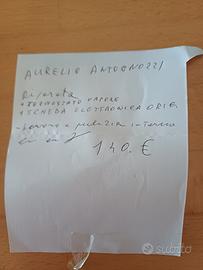 AURELIO ANTOGNOZZI
Riparata
+ TERMOSTATO VAPORE
+ SCHEDA ELETTRONICA ORIG
pulizia interna
140. €
subito